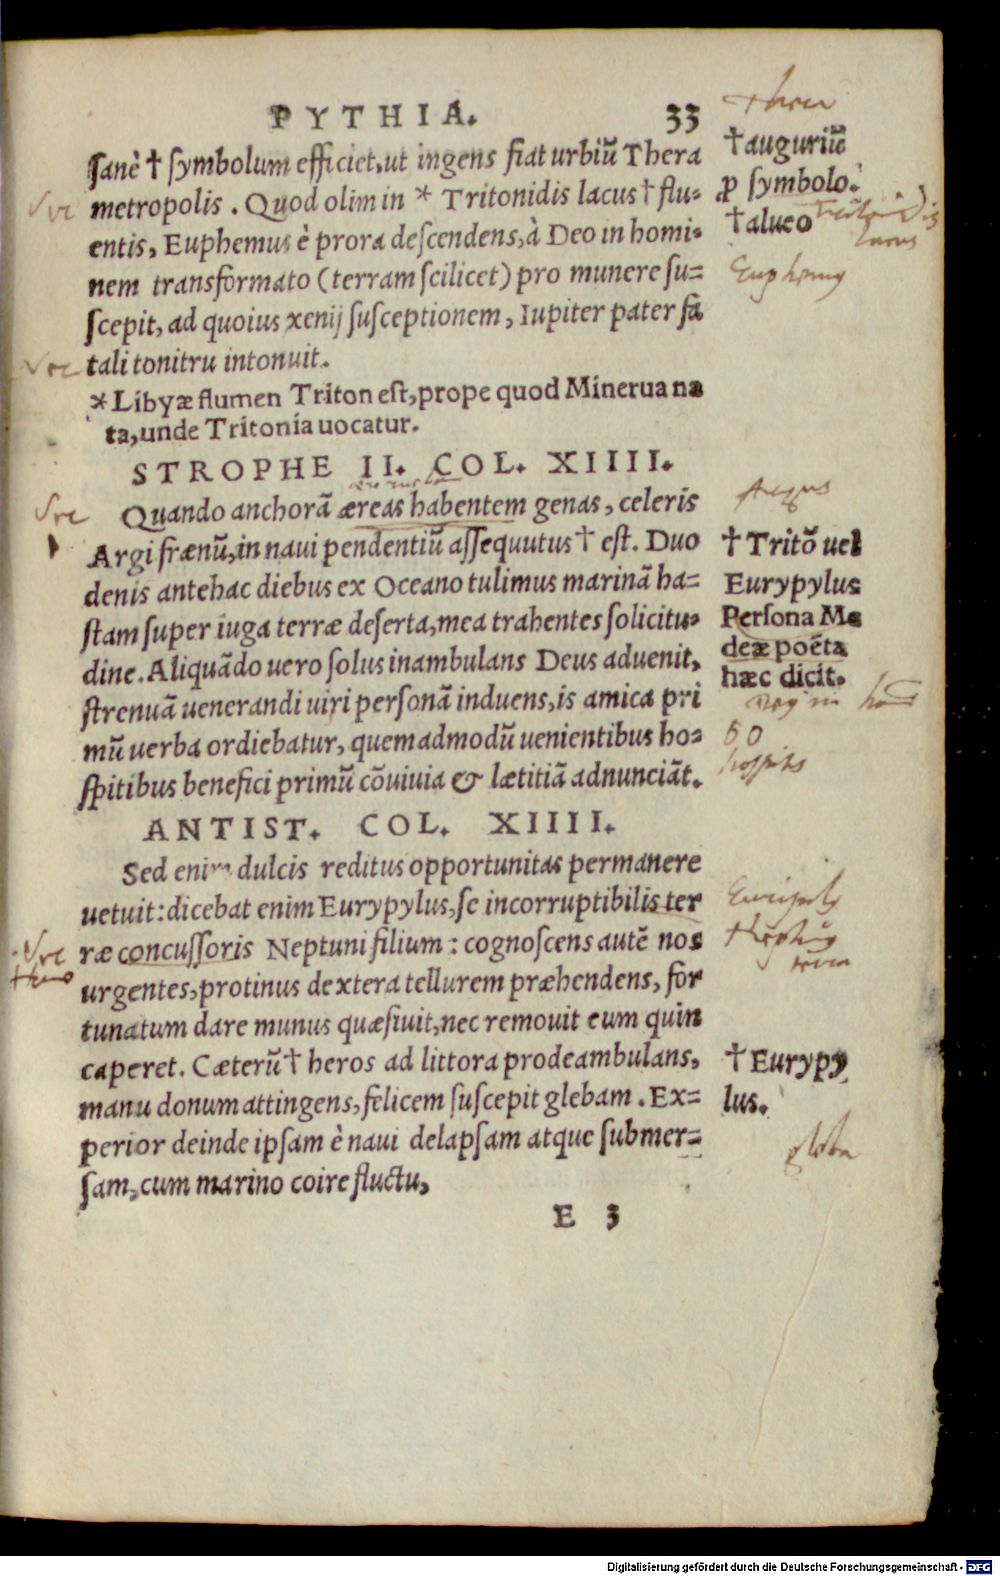 PYTHIA. 33
sanè † symbolum efficiet, ut ingens fiat urbiũ Thera
metropolis. Quod olim in * Tritonidis lacus † flu-
entis, Euphemus è prora descendens, à Deo in homi-
nem transformato (terram scilicet) pro munere su-
scepit, ad quoius xenij susceptionem, Iupiter pater fa
tali tonitru intonuit.
* Libyæ flumen Triton est, prope quod Minerua na
ta, unde Tritonia uocatur.
† auguriũ
p symbolo.
† alueo
Euphemus
STROPHE II. COL. XIIII.
Quando anchorã æreas habentem genas, celeris
Argi frænũ, in naui pendentiũ assequutus † est. Duo
denis antehac diebus ex Oceano tulimus marinã ha-
stam super iuga terræ deserta, mea trahentes solicitu-
dine. Aliquãdo uero solus inambulans Deus aduenit,
strenuã uenerandi uiri personã induens, is amica pri
mũ uerba ordiebatur, quemadmodũ uenientibus ho-
spitibus benefici primũ cõuiuia & lætitiã adnunciãt.
† Tritõ uel
Eurypylus
Persona Me
deæ poëta
hæc dicit.
ANTIST. COL. XIIII.
Sed enim dulcis reditus opportunitas permanere
uetuit: dicebat enim Eurypylus, se incorruptibilis ter
ræ concussoris Neptuni filium: cognoscens autẽ nos
urgentes, protinus dextera tellurem præhendens, for
tunatum dare munus quæsiuit, nec remouit eum quin
caperet. Cæterũ † heros ad littora prodeambulans,
manu donum attingens, felicem suscepit glebam. Ex-
perior deinde ipsam è naui delapsam atque submer-
sam, cum marino coire fluctu,
† Eurypy
lus.
gleba
E 3
Digitalisierung gefördert durch die Deutsche Forschungsgemeinschaft - DFG